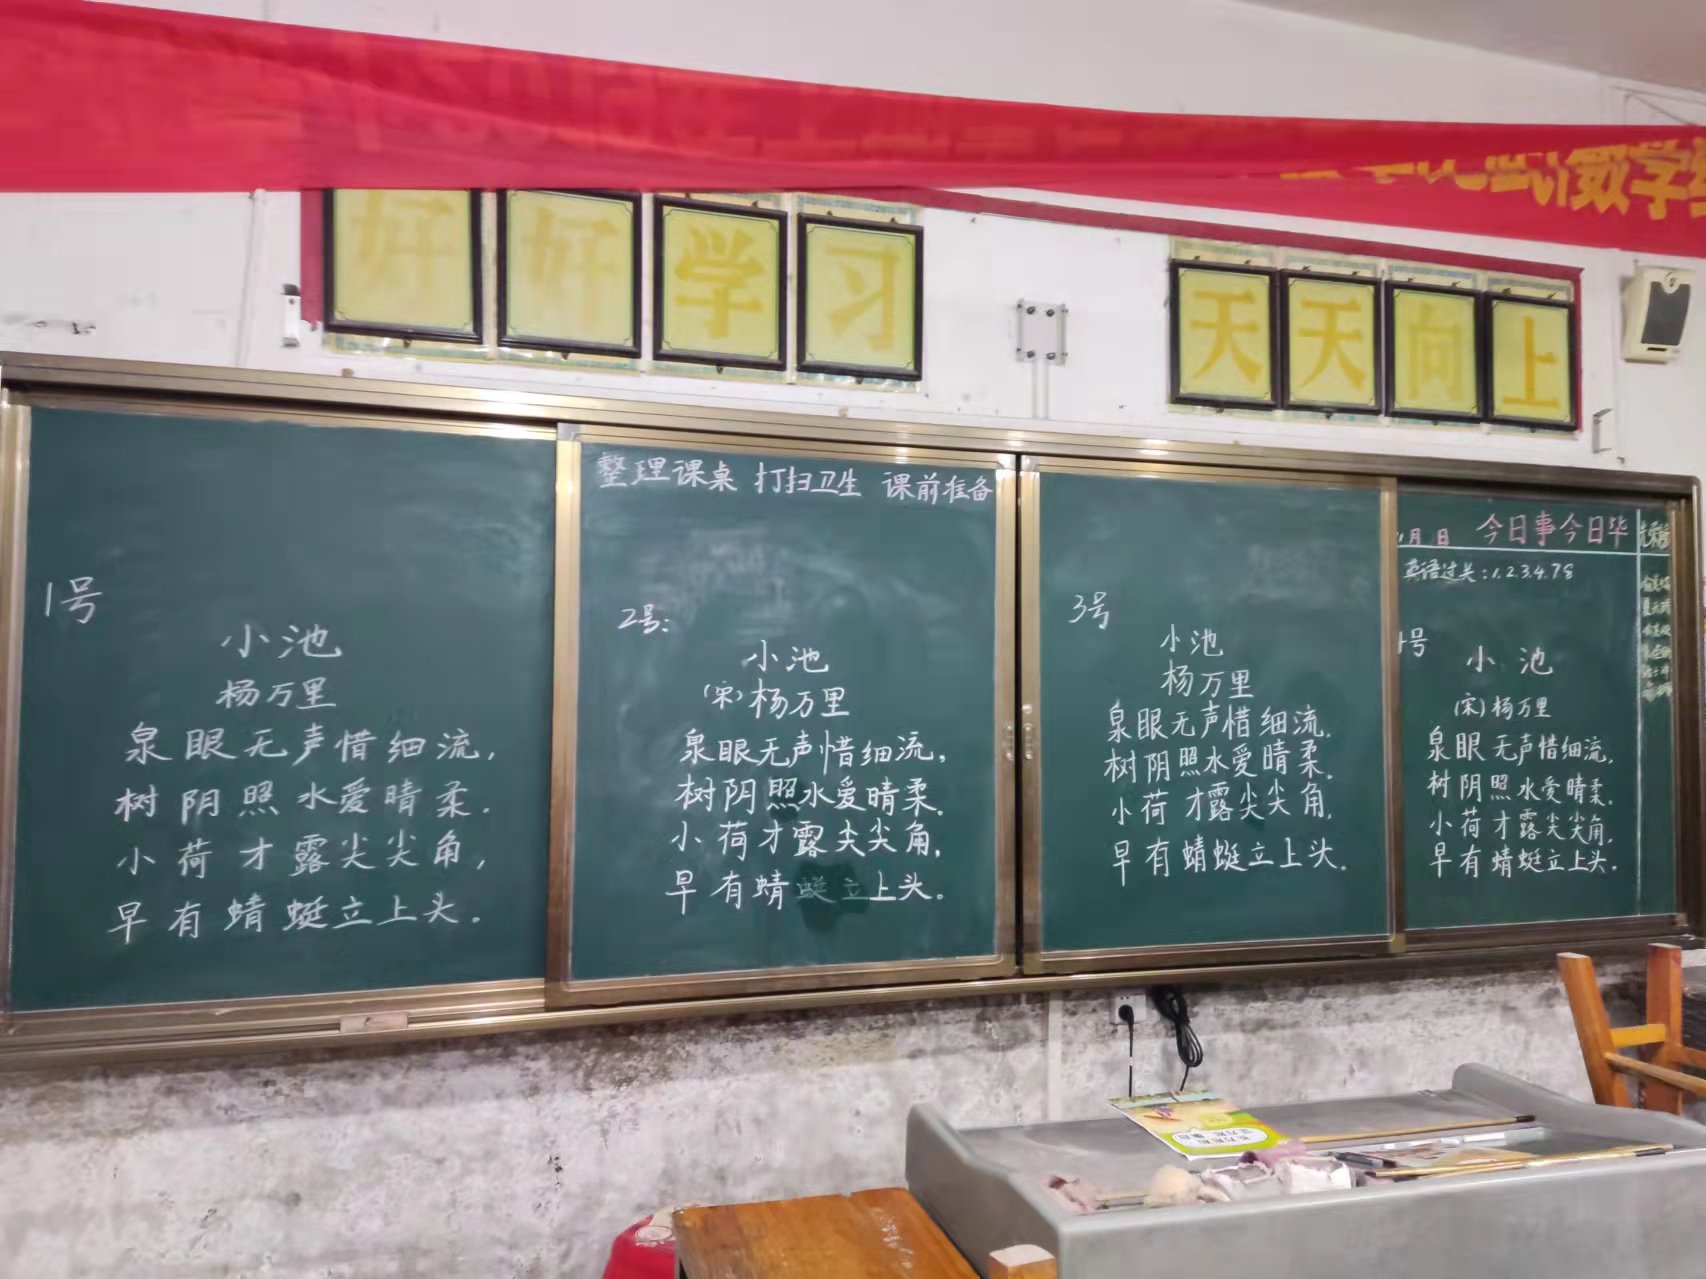 数学
好好学习
天天向上
整理课桌 打扫卫生 课前准备
月 日 今日事今日毕
英语过关:1.2.3.4.7.8
1号
小池
杨万里
泉眼无声惜细流,
树阴照水爱晴柔.
小荷才露尖尖角,
早有蜻蜓立上头.
2号:
小池
(宋)杨万里
泉眼无声惜细流,
树阴照水爱晴柔.
小荷才露尖尖角,
早有蜻蜓立上头.
3号
小池
杨万里
泉眼无声惜细流.
树阴照水爱晴柔.
小荷才露尖尖角,
早有蜻蜓立上头.
号
小池
(宋)杨万里
泉眼无声惜细流,
树阴照水爱晴柔.
小荷才露尖尖角,
早有蜻蜓立上头.